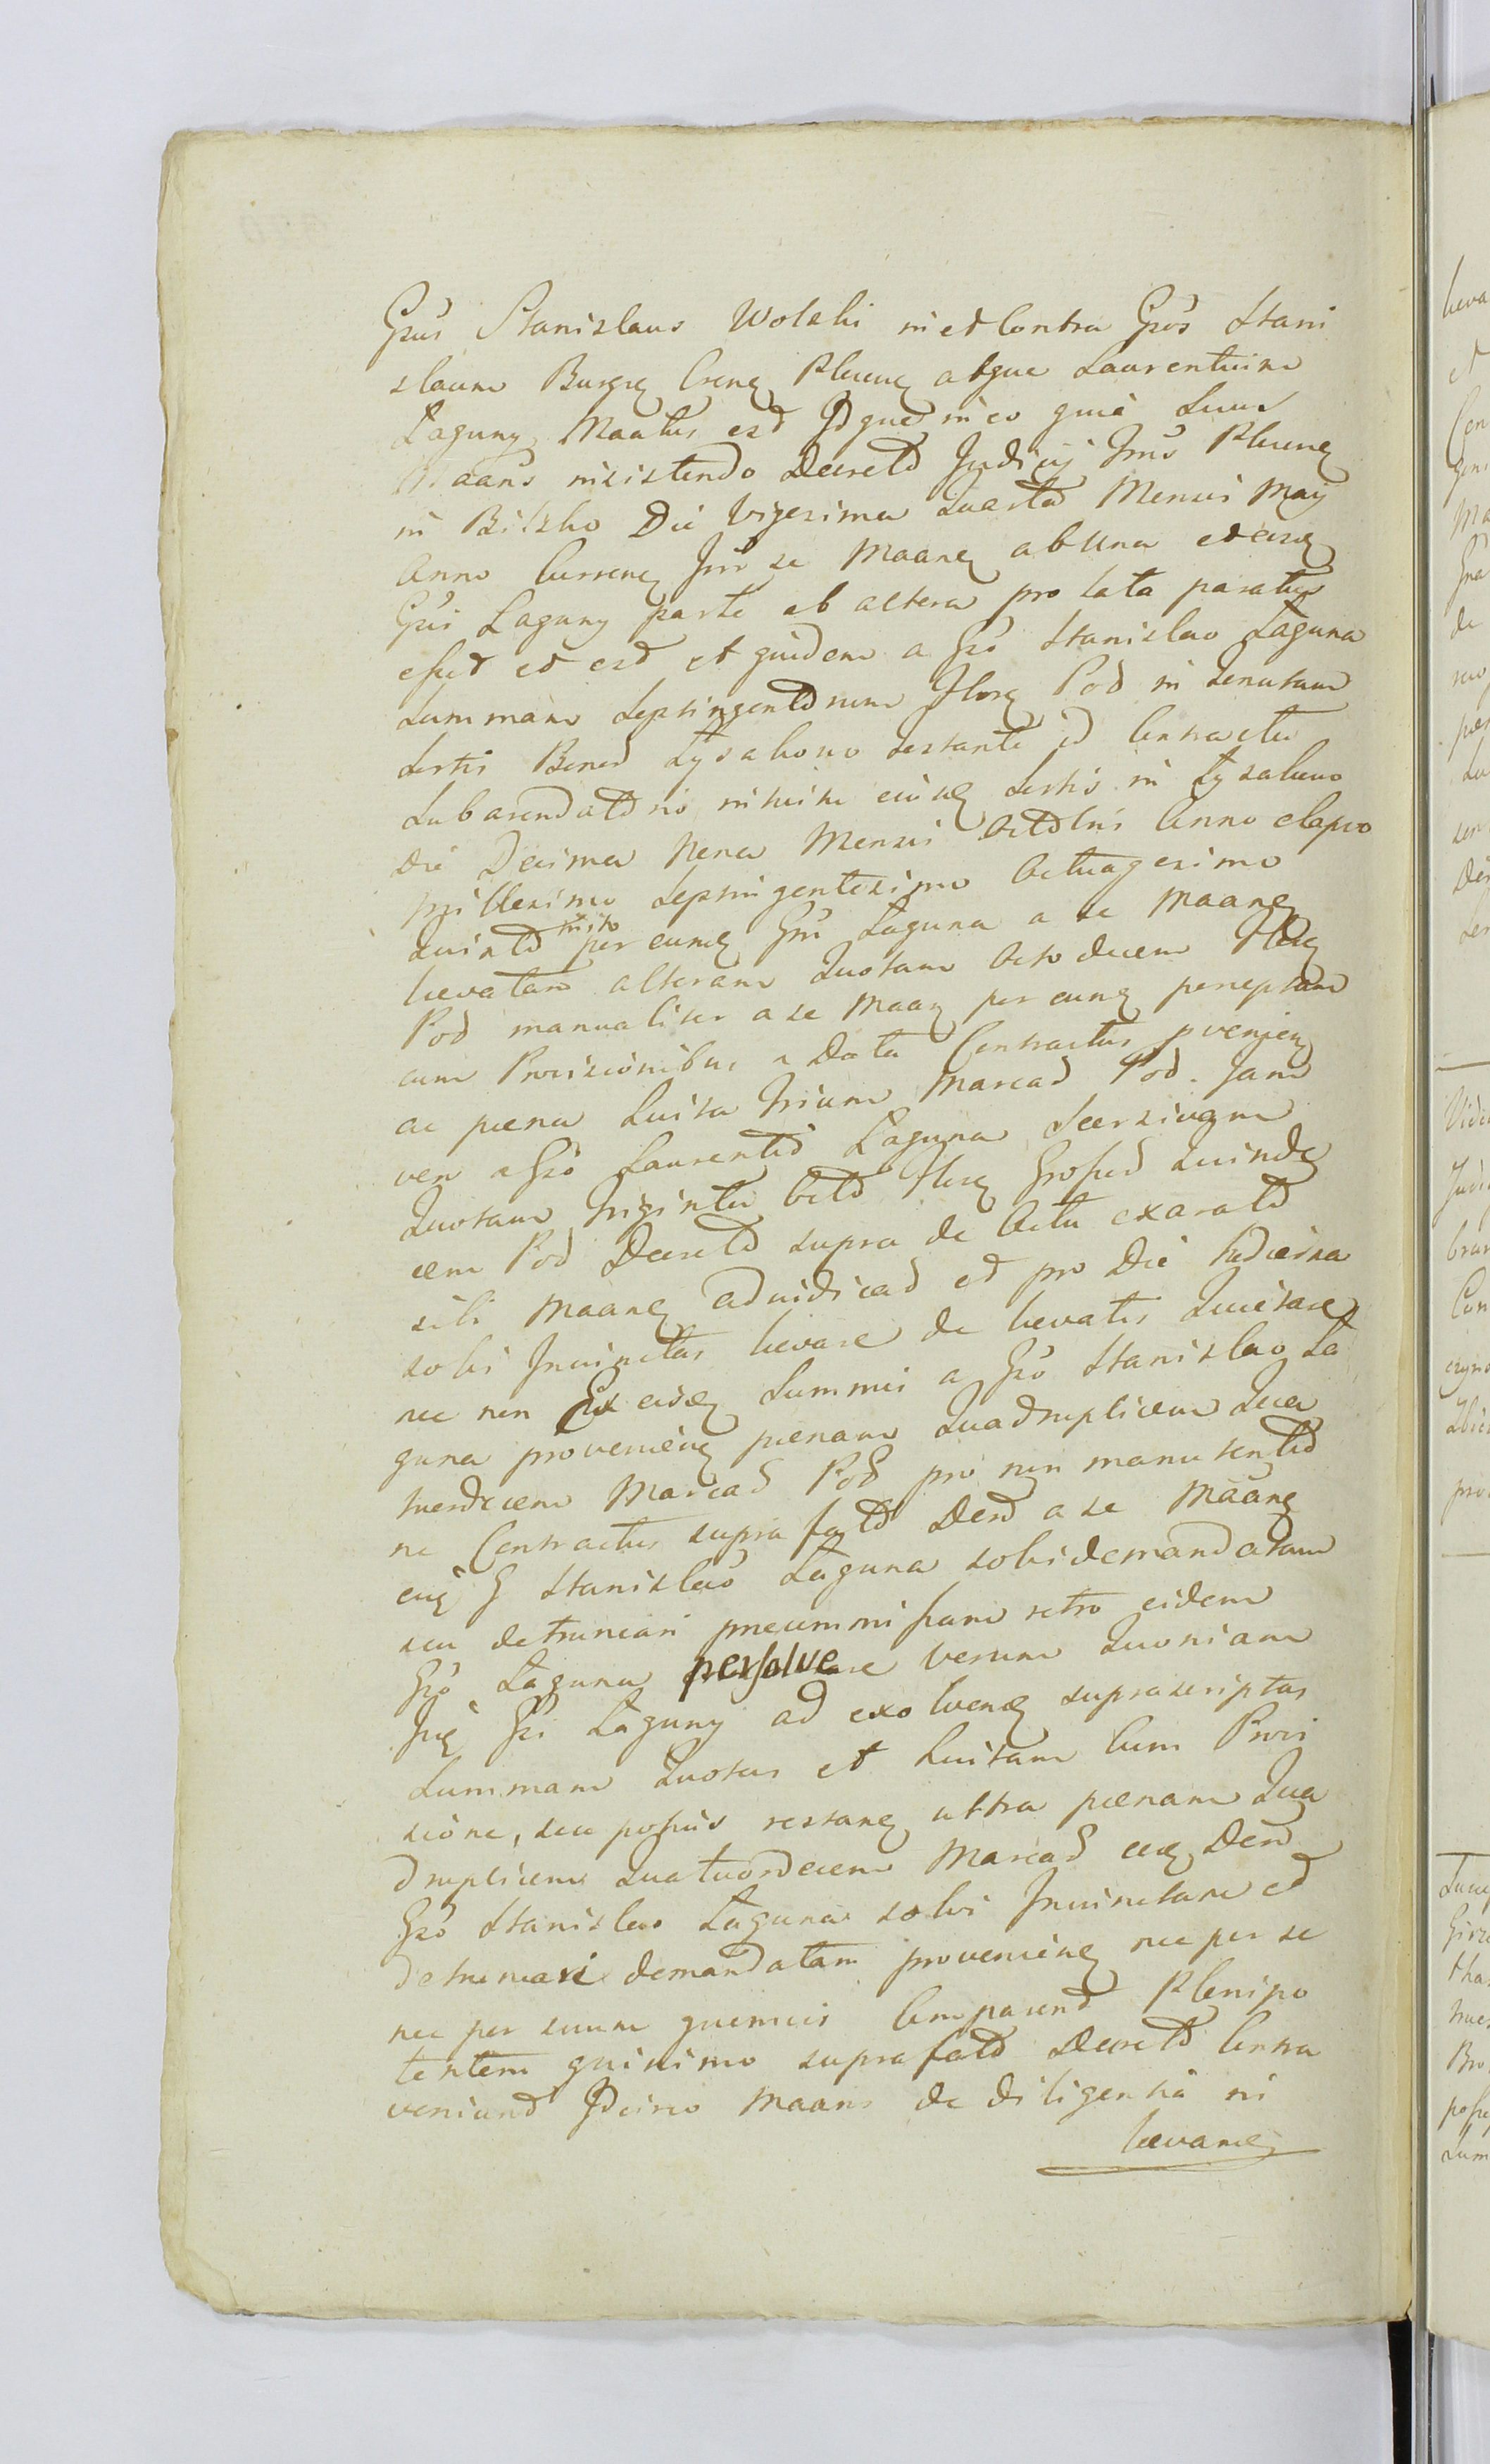 Gsus Stanislaus Wolski in et Contra Gsos Stani
slaum Burgrę Crenę Plucenę atque Laurentium
Laguny Maatus est Idque in eo quia Suus
Maans insistendo Decreto Judicij Jnis Plucenę
in Bilsko Die Vigesima Quarta Mensis Maij
Anno Currenę inr se Maanę ab Una et eosdę
Gsis Laguny parte ab altera pro lata paratus
esset et est et quidem a Gso Stanislao Laguna
Summam Septingentorum Florę Pol in tenutam
Sortis Bonor Lysakowo restante et Contractu
Subarendatorio intuitu eiusdę Sortis in Lysakowo
Die Decima Nona Mensis Octobris Anno elapso
Millesimo Septingentesimo Octuagesimo
Quinto inito per eumdę Gsm Laguna a se Maanę
levatam alteram Quotam Octodecem Florę
Pol manualiter a se Maanę per eundę perceptam
cum Provisionibus a Data Contractus pvenienę
ac poena Luita trium Marcar Pol. Jam
vero a Gso Laurentio Laguna Seorsivam
Quotam Triginta Octo Florę Grossor Quinde
cem Pol Decreto supra de Actu exarato
sibi Maanę adiudicat et pro Die hodierna
solvi Iniunctas levare de levatis Quietare
nec non Ex eisdę Summis a Gso Stanislao La
guna provenienę poenam Quadruplicem Qua
tuordecem Marcar Pol pro non manutentio
ne Contractus supra fato Dere a se Maanę
eidę G Stanislao Laguna solvi demandatam
seu detruncari praeummissam retro eidem
Gso Laguna persolvere Verum Quoniam
Iidę Gsi Laguny ad exolvendę suprascriptas
Summam Quotas et Luitam Cum Provi
sione, seu potius restanę ultra poenam Qua
druplicem Quatuordecem Marcar eidę Dere
Gso Stanislao Laguna solvi Iniunctam et
detruncari demandatam provenienę nec per se
nec per suum quemvis Comparuere Plenipo
tentem quinimo suprafato Decreto Contra
veniunt Idcirco Maans de diligentia in
levandę